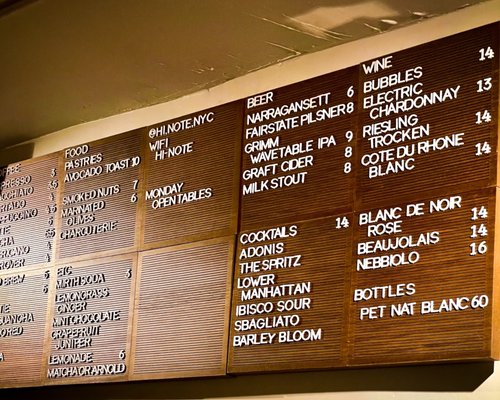 FOOD
PASTRIES
AVOCADO TOAST 10
SMOKED NUTS 7
MARINATED 6
OLIVES
CHARCUTERIE
ETC
MIRTH SODA 3
LEMONGRASS
GINGER
MINT CHOCOLATE
GRAPEFRUIT
JUNIPER
LEMONADE 6
MATCHA OR ARNOLD
@HI.NOTE.NYC
WIFI
HI-NOTE
MONDAY
OPEN TABLES
BEER
NARRAGANSETT 6
FAIRSTATE PILSNER 8
GRIMM 9
WAVETABLE IPA
GRAFT CIDER 8
MILK STOUT 8
COCKTAILS 14
ADONIS
THE SPRITZ
LOWER
MANHATTAN
IBISCO SOUR
SBAGLIATO
BARLEY BLOOM
WINE 14
BUBBLES
ELECTRIC 13
CHARDONNAY
RIESLING 14
TROCKEN
COTE DU RHONE 14
BLANC
BLANC DE NOIR 14
ROSE
BEAUJOLAIS 14
NEBBIOLO 16
BOTTLES
PET NAT BLANC 60